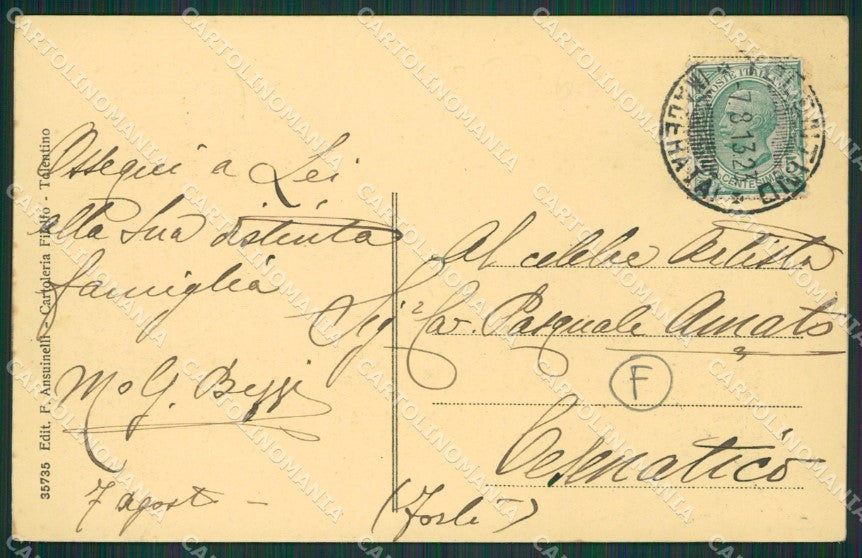 Ossequi a Lei
alla Sua distinta
famiglia
Mo G. Bezzi
7 agosto -
Al celebre Artista
Sigr Cav. Pasquale Amato
F
Cesenatico
(Forlì)
35735 Edit. F. Ansuinelli - Cartoleria Filelfo - Tolentino
POSTE ITALIANE
CENTESIMI
7.8.13.2
(MACERATA)
CARTOLINOMANIA